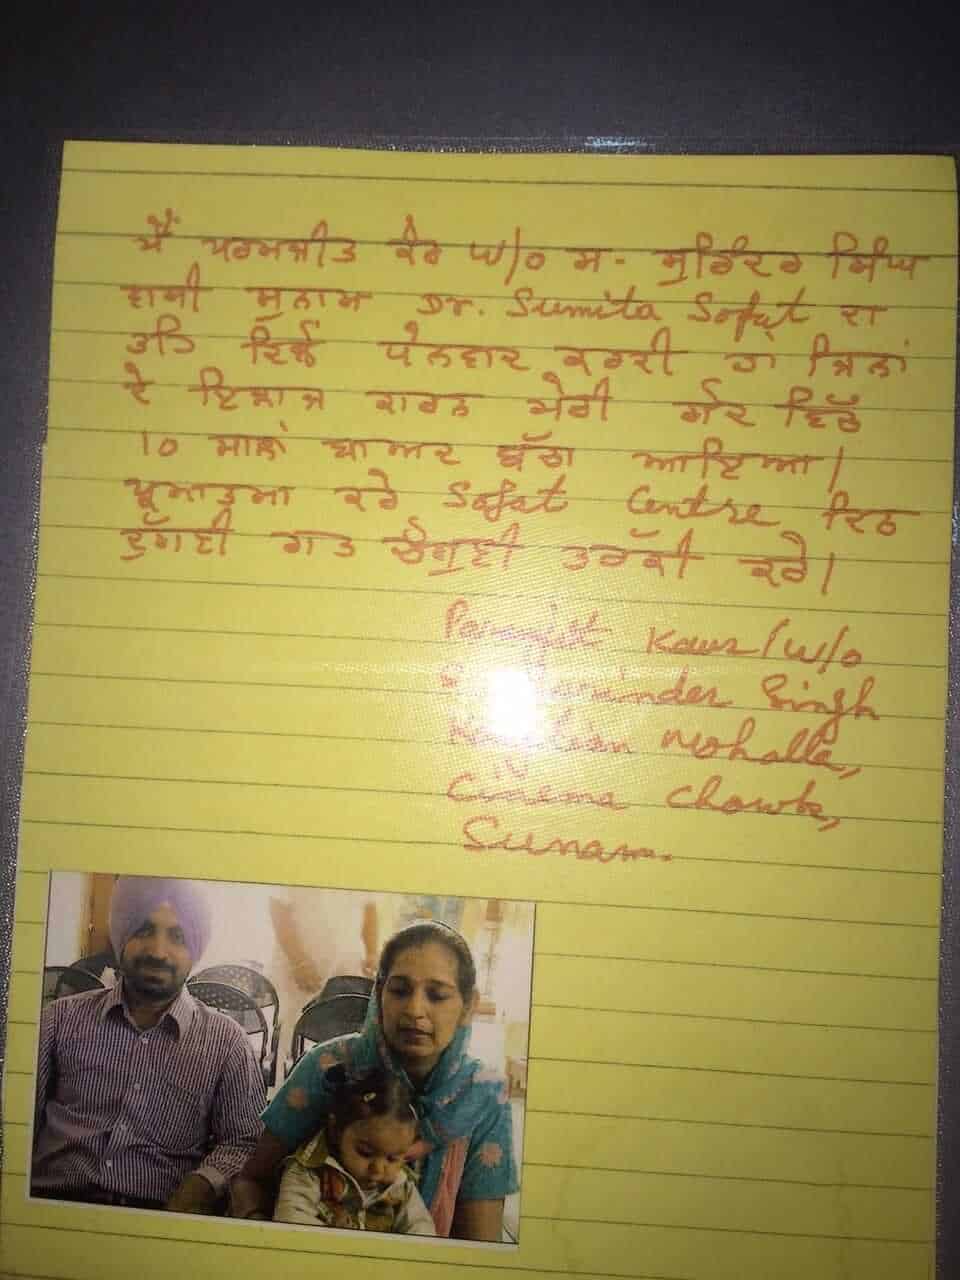 ਮੈਂ ਪਰਮਜੀਤ ਕੌਰ W/o ਸ. ਸੁਰਿੰਦਰ ਸਿੰਘ
ਵਾਸੀ ਸੁਨਾਮ Dr. Sumita Sofat ਦਾ
ਤਹਿ ਦਿਲੋਂ ਧੰਨਵਾਦ ਕਰਦੀ ਹਾਂ ਜਿਨਾਂ
ਦੇ ਇਲਾਜ ਕਾਰਨ ਮੇਰੀ ਗੋਦ ਵਿੱਚ
10 ਸਾਲਾਂ ਬਾਅਦ ਬੱਚਾ ਆਇਆ।
ਪ੍ਰਮਾਤਮਾ ਕਰੇ Sofat Centre ਦਿਨ
ਦੁੱਗਣੀ ਰਾਤ ਚੌਗੁਣੀ ਤਰੱਕੀ ਕਰੇ।
Paramjit Kaur (W/o
Singh
Mohalla,
Cinema Chowk,
Sunam.